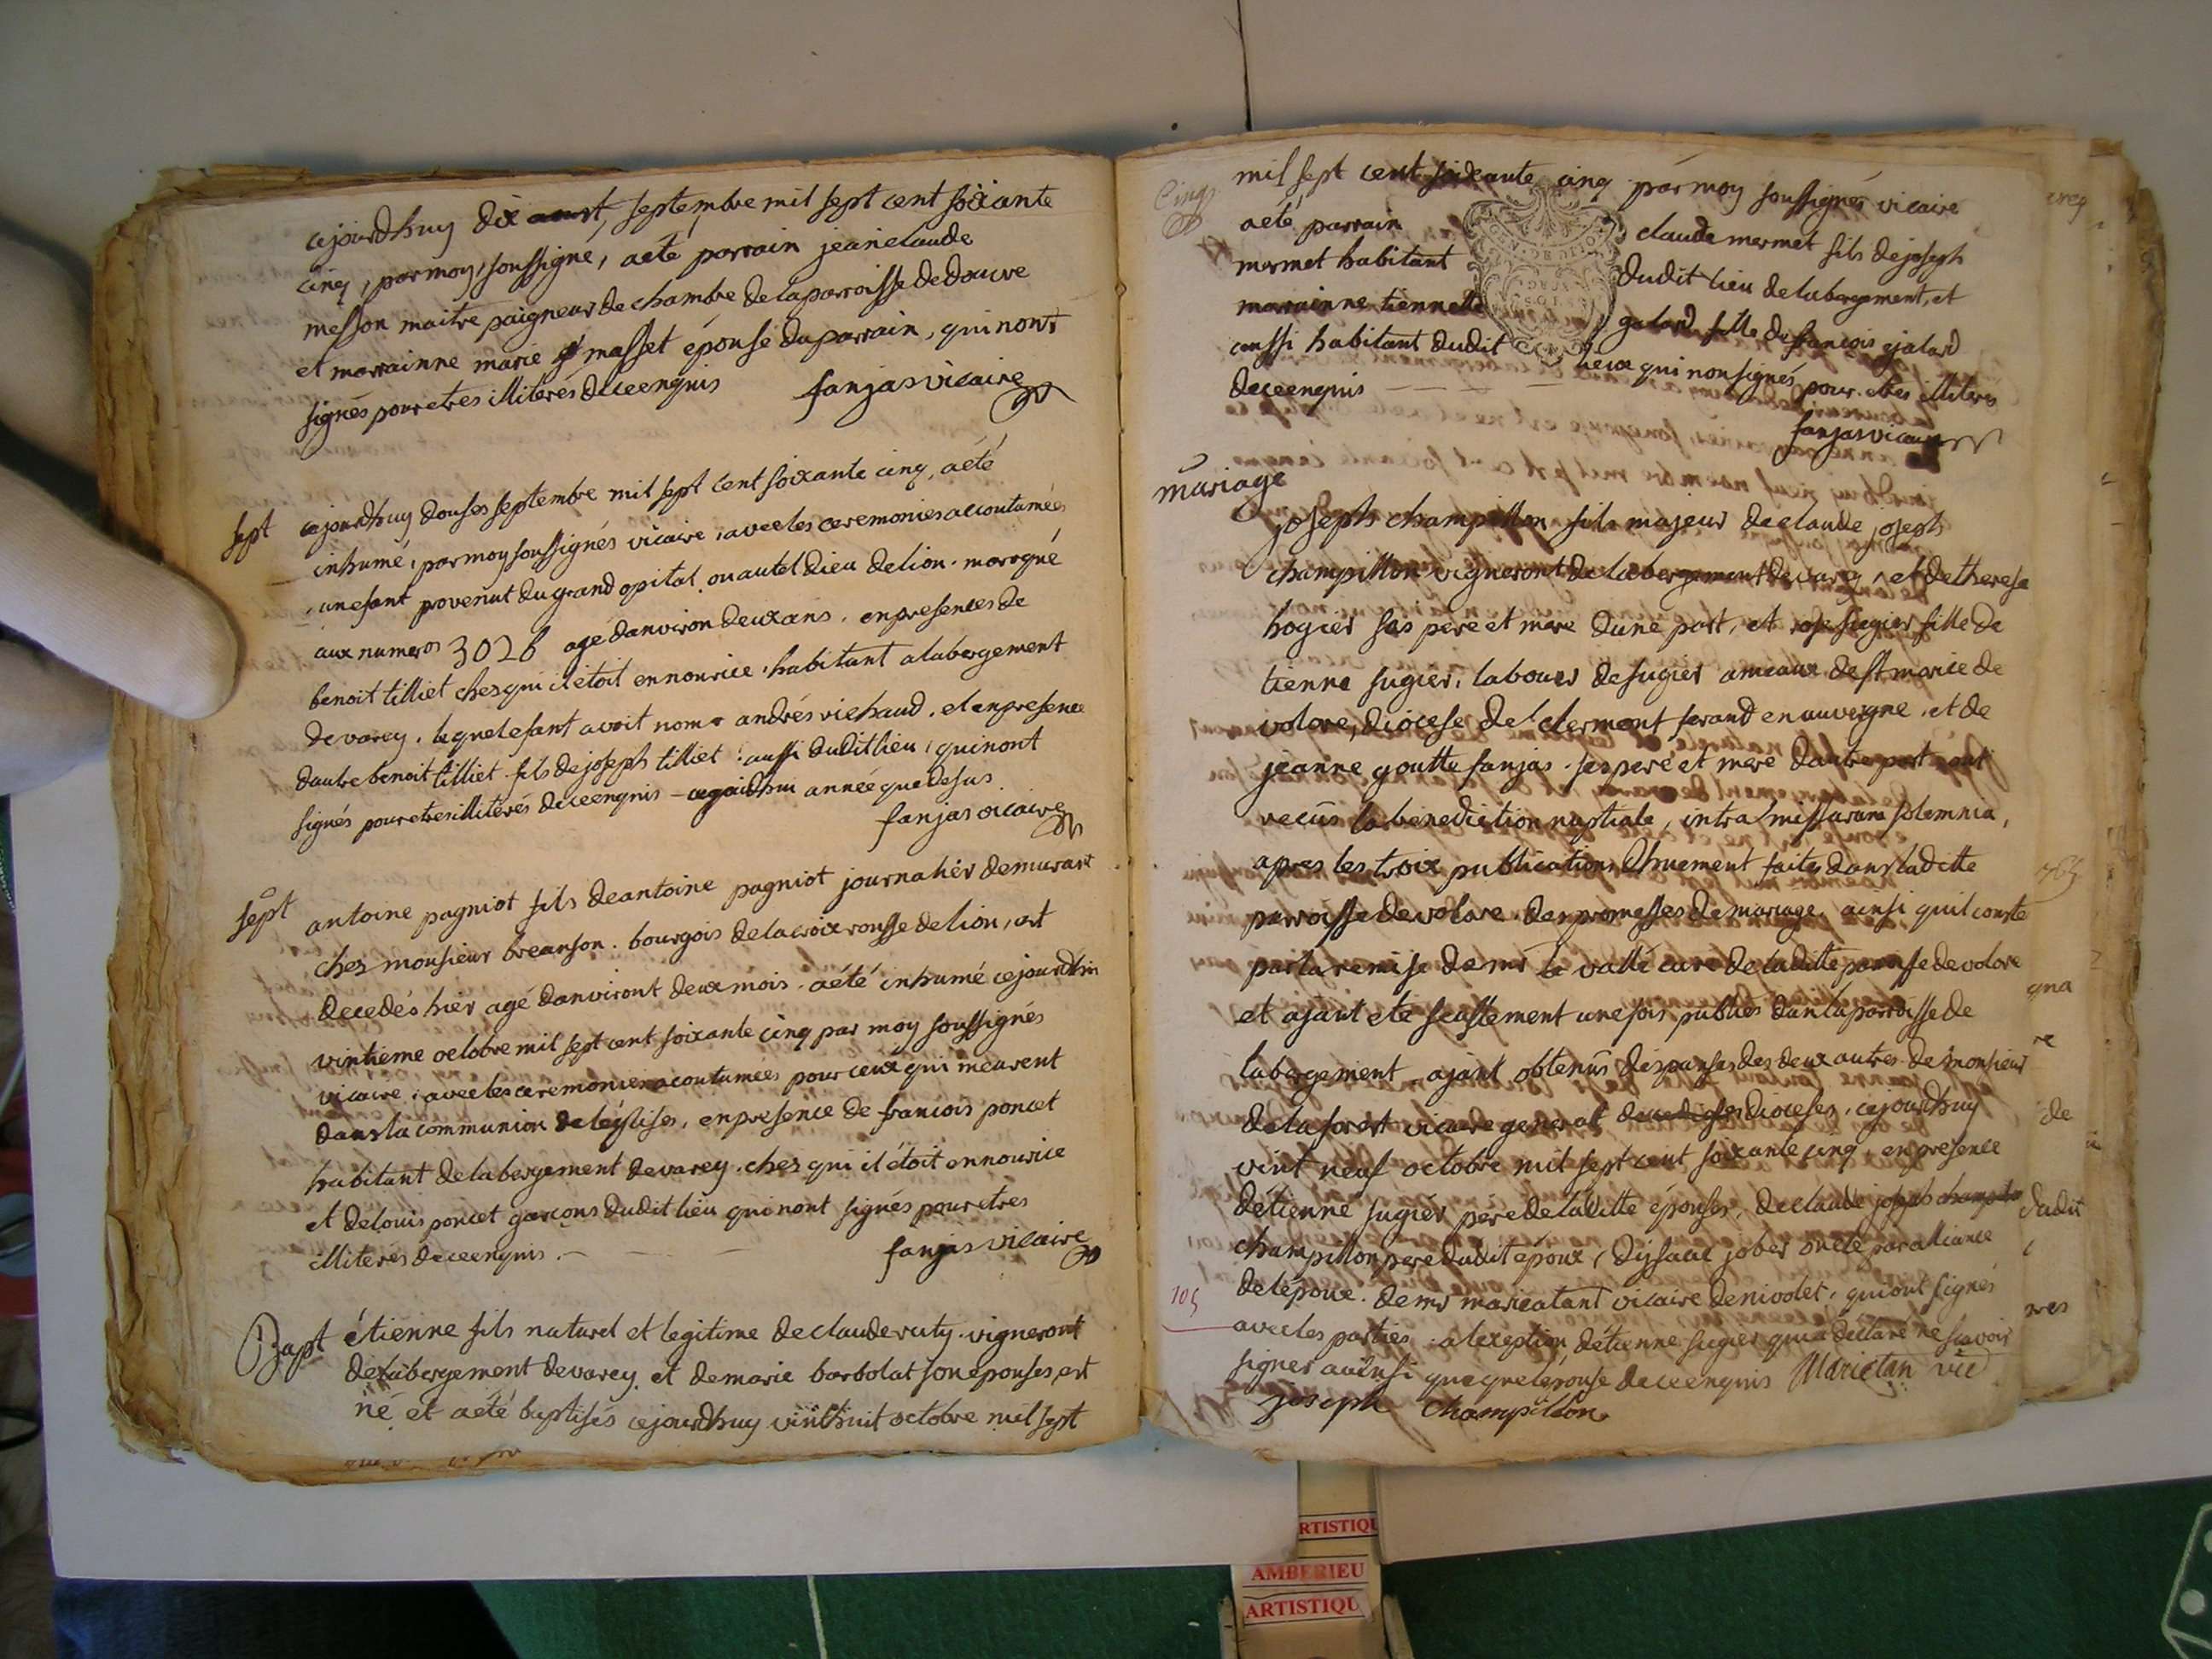 cejourdhuy dix aoust, septembre mil sept cent soixante
cinq, par moy, soussigné, aété parrain jean claude
messon maitre paigneur de chambre de laparroisse de douvre
et marrainne marie masset épouse du parrain, qui nont
signés pour etres illiterés deceenquis fanjas vicaire
sept cejourdhuy douses septembre mil sept cent soixante cinq, aété
inhumé, par moy soussignés vicaire, avec les ceremonies acoutumées
, un efant provenut du grand opital ou autel dieu de lion. marqué
aux numeros 3026 agé danviron deux ans. en presences de
benoit tilliet ches qui il étoit en nourice. habitant alabergement
de varey. le quel efant avoit nom andrés richaud. et en presence
dautre benoit tilliet fils de joseph tilliet aussi dudit lieu, qui nont
signés pour etres illiterés deceenquis année que desus
fanjas vicaire
sept antoine pagniot fils de antoine pagniot journalier demurant
ches monsieur breanson. bourgois de la croix rousse de lion, est
decedés hier agé danviront deux mois. aété inhumé cejourdhui
vintieme octobre mil sept cent soixante cinq par moy soussignés
vicaire. avec les ceremonies acoutumées pour ceux qui meurent
dans la communion de léglises, en presence de francois poncet
habitant de labergement de varey. ches qui il étoit en nourice
et de louis poncet garcons dudit lieu qui nont signés pour etres
illiterés deceenquis. fanjas vicaire
Bapt étienne fils naturel et legitime de claude ruty. vigneront
de labergement de varey et de marie barbolat son epouses, est
né et aété baptisés cejourdhuy vinthuit octobre mil sept
Cinq
mil sept cent soixante cinq par moy soussignés vicaire
aété parrain claude mermet fils de joseph
mermet habitant dudit lieu de labergement, et
marainne tiennette galard fille de francois galard
aussi habitant dudit lieux qui non signés pour etres illiterés
deceenquis
fanjas vicaire
mariage
joseph champillon fils majeur de claude joseph
champillon vigneront de labergement de varey, et de therese
hogier ses pere et mere dune part, et rose sugier fille de
tienne sugier, labouer de sugier ameaux de st marie de
volore, diocese de clermont ferand en auvergne. et de
jeanne goutte fanjas. ses pere et mere dautre part ont
recûs la benediction nuptiale, intra missarum solemnia,
apres les troix publications dhuement faites dans laditte
parroisse de volore. des promesses de mariage, ainsi quil conste
par la remise de mr la vallé curé de laditte paroisse de volore
et ajant eté seullement une fois publiés dans laparroisse de
labergement ajant obtenûs dispanses des deux autres de monsieur
de la forest vicaire general dioceses. cejourdhuy
vint neuf octobre mil sept cent soixante cinq, en presence
détienne sugier pere de laditte épouses, de claude joseph
champillon pere dudit époux, dysaac jober oncle par aliance
de lépoux. de mr marieatant vicaire de nivolet, qui ont signés
105
avec les parties. alexeption détienne sugier qui a declaré ne scavoir
signer auinsi que lépouse deceenquis Marietan vic
joseph champillon